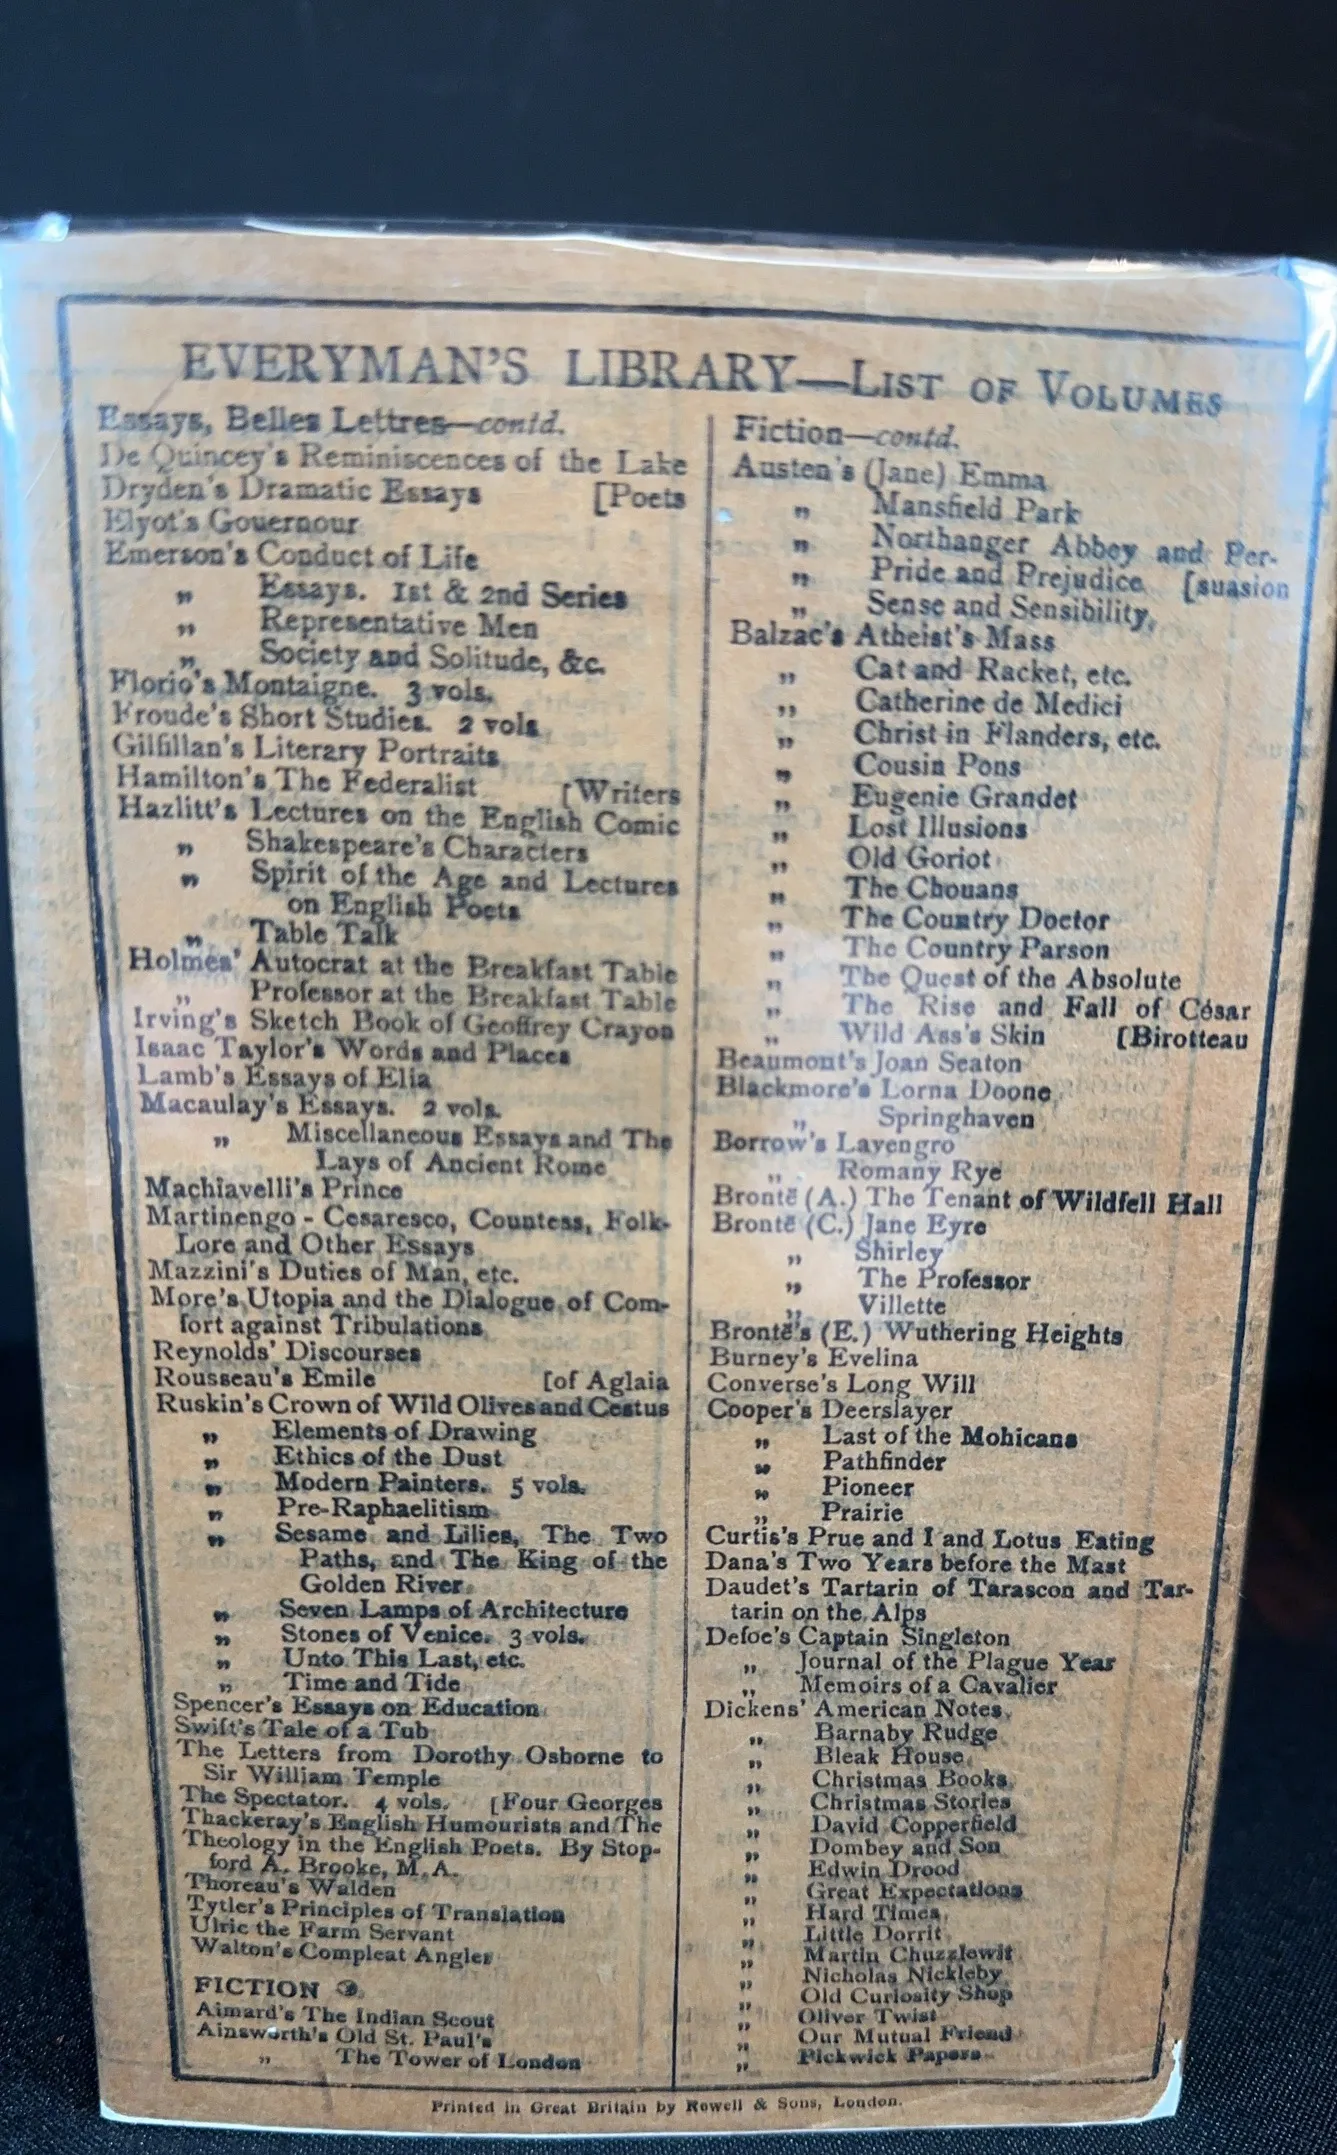 EVERYMAN'S LIBRARY—LIST OF VOLUMES
Essays, Belles Lettres—contd.
De Quincey's Reminiscences of the Lake
Dryden's Dramatic Essays [Poets
Elyot's Gouernour
Emerson's Conduct of Life
„ Essays. 1st & 2nd Series
„ Representative Men
„ Society and Solitude, &c.
Florio's Montaigne. 3 vols.
Froude's Short Studies. 2 vols.
Gilfillan's Literary Portraits
Hamilton's The Federalist [Writers
Hazlitt's Lectures on the English Comic
„ Shakespeare's Characters
„ Spirit of the Age and Lectures
on English Poets
„ Table Talk
Holmes' Autocrat at the Breakfast Table
„ Professor at the Breakfast Table
Irving's Sketch Book of Geoffrey Crayon
Isaac Taylor's Words and Places
Lamb's Essays of Elia
Macaulay's Essays. 2 vols.
„ Miscellaneous Essays and The
Lays of Ancient Rome
Machiavelli's Prince
Martinengo - Cesaresco, Countess, Folk-
Lore and Other Essays
Mazzini's Duties of Man, etc.
More's Utopia and the Dialogue of Com-
fort against Tribulations
Reynolds' Discourses
Rousseau's Emile [of Aglaia
Ruskin's Crown of Wild Olives and Cestus
„ Elements of Drawing
„ Ethics of the Dust
„ Modern Painters. 5 vols.
„ Pre-Raphaelitism
„ Sesame and Lilies, The Two
Paths, and The King of the
Golden River
„ Seven Lamps of Architecture
„ Stones of Venice. 3 vols.
„ Unto This Last, etc.
„ Time and Tide
Spencer's Essays on Education
Swift's Tale of a Tub
The Letters from Dorothy Osborne to
Sir William Temple
The Spectator. 4 vols. [Four Georges
Thackeray's English Humourists and The
Theology in the English Poets. By Stop-
ford A. Brooke, M.A.
Thoreau's Walden
Tytler's Principles of Translation
Ulric the Farm Servant
Walton's Compleat Angler
FICTION
Aimard's The Indian Scout
Ainsworth's Old St. Paul's
„ The Tower of London
Fiction—contd.
Austen's (Jane) Emma
„ Mansfield Park
„ Northanger Abbey and Per-
„ Pride and Prejudice [suasion
„ Sense and Sensibility
Balzac's Atheist's Mass
„ Cat and Racket, etc.
„ Catherine de Medici
„ Christ in Flanders, etc.
„ Cousin Pons
„ Eugenie Grandet
„ Lost Illusions
„ Old Goriot
„ The Chouans
„ The Country Doctor
„ The Country Parson
„ The Quest of the Absolute
„ The Rise and Fall of César
„ Wild Ass's Skin [Birotteau
Beaumont's Joan Seaton
Blackmore's Lorna Doone
„ Springhaven
Borrow's Lavengro
„ Romany Rye
Brontë (A.) The Tenant of Wildfell Hall
Brontë (C.) Jane Eyre
„ Shirley
„ The Professor
„ Villette
Brontë's (E.) Wuthering Heights
Burney's Evelina
Converse's Long Will
Cooper's Deerslayer
„ Last of the Mohicans
„ Pathfinder
„ Pioneer
„ Prairie
Curtis's Prue and I and Lotus Eating
Dana's Two Years before the Mast
Daudet's Tartarin of Tarascon and Tar-
tarin on the Alps
Defoe's Captain Singleton
„ Journal of the Plague Year
„ Memoirs of a Cavalier
Dickens' American Notes
„ Barnaby Rudge
„ Bleak House
„ Christmas Books
„ Christmas Stories
„ David Copperfield
„ Dombey and Son
„ Edwin Drood
„ Great Expectations
„ Hard Times
„ Little Dorrit
„ Martin Chuzzlewit
„ Nicholas Nickleby
„ Old Curiosity Shop
„ Oliver Twist
„ Our Mutual Friend
„ Pickwick Papers
Printed in Great Britain by Rowell & Sons, London.